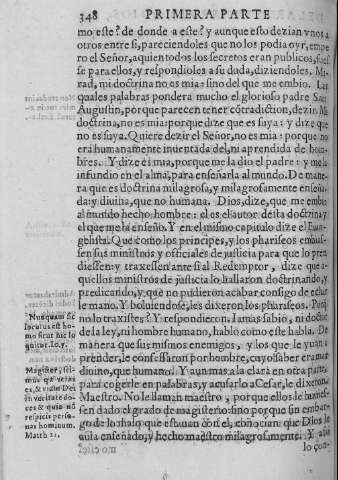 348 PRIMERA PARTE
mo este? de donde a este? y aunque esto dezian vnos a
otros entre si, pareciendoles que no los podia oyr, empe
ro el Señor, a quien todos los secretos eran publicos, fues
se para ellos, y respondioles a su duda, diziendoles. Mi-
rad, mi doctrina no es mia: sino del que me embio. Las
quales palabras pondera mucho el glorioso padre San
Augustin, porque parecen tener cōtradiction, dezir. Mi
doctrina, no es mia: porque dize que es suya: y dize que
no es suya. Quiere dezir el Señor, no es mia: porque no
era humanamente inuentada del, ni aprendida de hom-
bres. Y dize es mia, porque me la dio el padre: y me la
infundio en el alma, para enseñarla al mundo. De mane
ra que es doctrina milagrosa, y milagrosamente enseña
da: y diuina, que no humana. Dios, dize, que me embio
al mundo hecho hombre: el es el autor desta doctrina y
el que me la enseño. Y en el mismo capitulo dize el Euan
gelista. Que como los principes, y los phariseos embias-
sen sus ministros y officiales de justicia para que lo pren
diessen: y traxessen ante si al Redemptor, dize que a-
quellos ministros de justicia lo hallaron doctrinando, y
predicando, y que no pudieron acabar consigo de echar
le mano. Y boluiendose, les dixeron los phariseos. Porq̄
no lo traxistes? Y respondieron. Iamas sabio, ni doctor
de la ley, ni hombre humano, hablo como este habla. De
manera que sus mismos enemigos, y los que le yuan a
prender, le confessaron por hombre, cuyo saber era mas
diuino, que humano. Y aun mas a la clara en otra parte,
para cogerle en palabras, y acusarlo a Cesar, le dixeron.
Maestro. No le llaman maestro, porque ellos le huuies-
sen dado el grado de magisterio: sino porque sin embar-
go de lo malo que estauan con el, conocian que Dios le
auia enseñado, y hecho maestro milagrosamente. Y assi
lo con-
Nunquam sic
locutus est ho
mo sicut hic lo
quitur. Io. 7.
Magister, sci-
mus quia verax
es, & viam Dei
in veritate do-
ces, & quia nō
respicis perso-
nas hominum.
Matth 22.